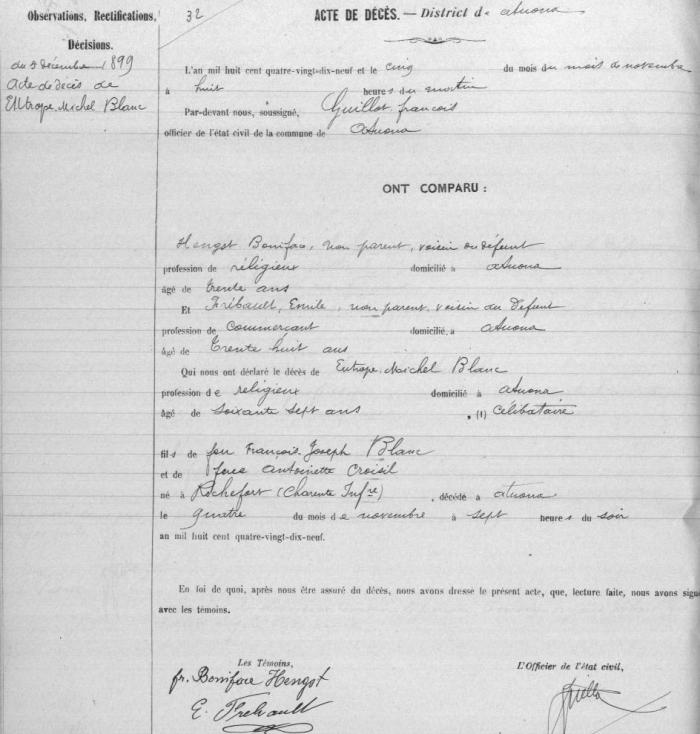 Observations, Rectifications,
Décisions.
du 5 décembre 1899
Acte de décès de
Eutrope Michel Blanc
32
ACTE DE DÉCÈS. — District de atuona
L'an mil huit cent quatre-vingt-dix-neuf et le cinq du mois du mois de novembre
à huit heures du matin
Par-devant nous, soussigné, Guillot francois
officier de l'état civil de la commune de atuona
ONT COMPARU :
Hengot Boniface, non parent, voisin du défunt
profession de réligieux domicilié à atuona
âgé de trente ans
Et Frébault, Emile, non parent, voisin du défunt
profession de commerçant domicilié à atuona
âgé de trente huit ans
Qui nous ont déclaré le décès de Eutrope Michel Blanc
profession de religieux domicilié à atuona
âgé de soixante sept ans (1) Célibataire
fils de feu François Joseph Blanc
et de feue Antoinette Croisil
né à Rochefort (Charente Infre) , décédé à atuona
le quatre du mois de novembre à sept heures du soir
an mil huit cent quatre-vingt-dix-neuf.
En foi de quoi, après nous être assuré du décès, nous avons dresse le présent acte, que, lecture faite, nous avons signé
avec les témoins.
Les Témoins,
L'Officier de l'état civil,
fr. Boniface Hengot
E. Frebault